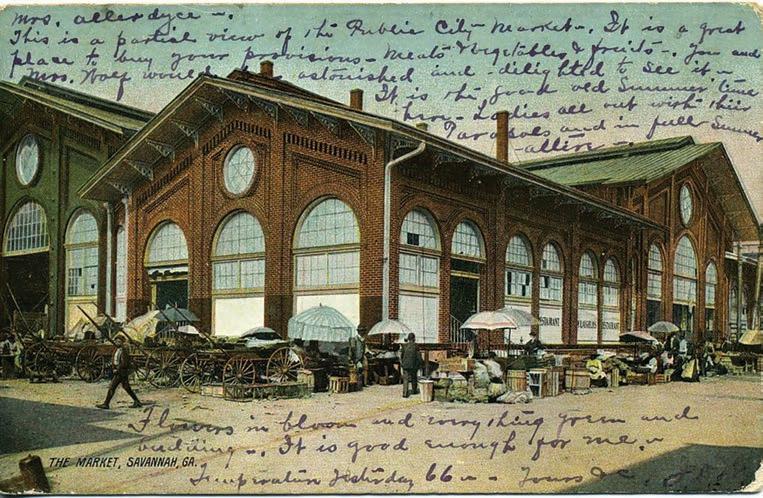 Mrs. Allerdyce -.
This is a partial view of the Public City Market -. It is a great
place to buy your provisions - Meats & Vegetables & fruits -. You and
Mrs. Wolf would be astonished and delighted to see it -
It is the good old Summer time
here - Ladies all out with their
Parasols and in full Summer
attire -
RESTAURANT
RESTAURANT
Flowers in bloom and everything green and
budding -. It is good enough for me. -
THE MARKET, SAVANNAH, GA.
Temperature Yesterday 66 - Yours &c.